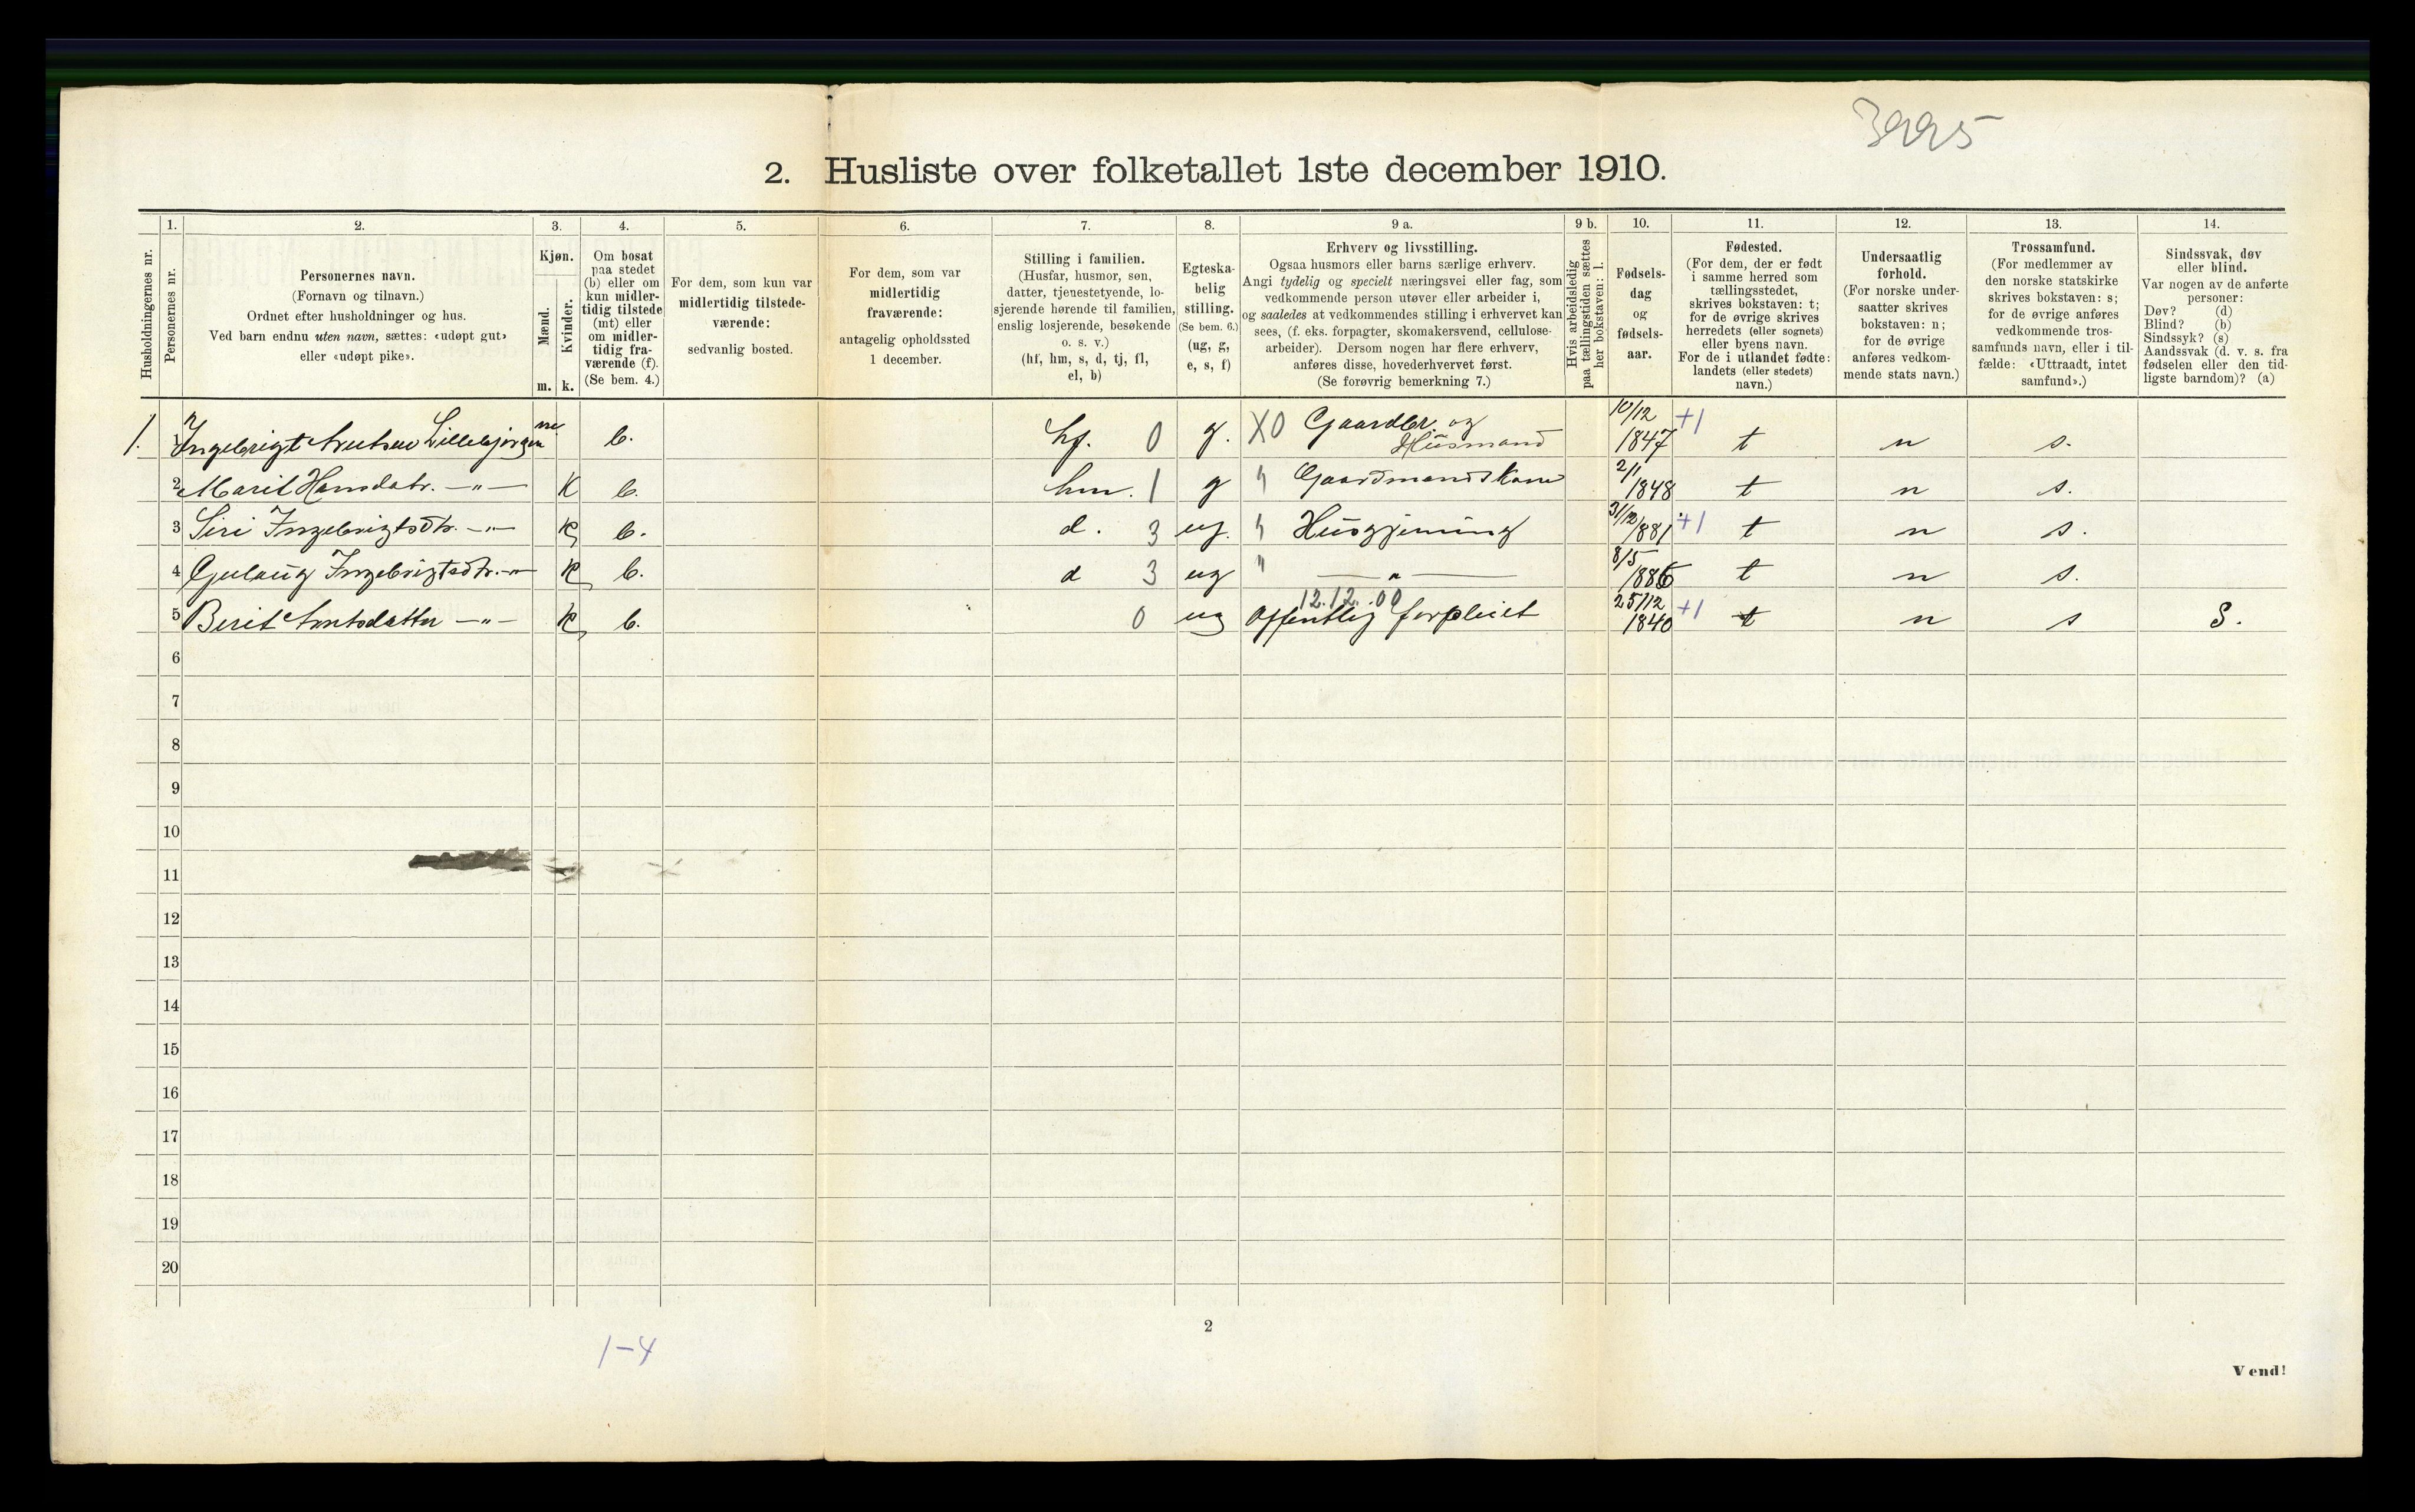 3995
2. Husliste over folketallet 1ste december 1910.
Husholdningernes nr.
1.
Personernes nr.
2.
Personernes navn.
(Fornavn og tilnavn.)
Ordnet efter husholdninger og hus.
Ved barn endnu uten navn, sættes: «udøpt gut»
eller «udøpt pike».
3.
Kjøn.
Mænd.
Kvinder.
m. k.
4.
Om bosat
paa stedet
(b) eller om
kun midler-
tidig tilstede
(mt) eller
om midler-
tidig fra-
værende (f).
(Se bem. 4.)
5.
For dem, som kun var
midlertidig tilstede-
værende:
sedvanlig bosted.
6.
For dem, som var
midlertidig
fraværende:
antagelig opholdssted
1 december.
7.
Stilling i familien.
(Husfar, husmor, søn,
datter, tjenestetyende, lo-
sjerende hørende til familien,
enslig losjerende, besøkende
o. s. v.)
(hf, hm, s, d, tj, fl,
el, b)
8.
Egteska-
belig
stilling.
(Se bem. 6.)
(ug, g,
e, s, f)
9 a.
Erhverv og livsstilling.
Ogsaa husmors eller barns særlige erhverv.
Angi tydelig og specielt næringsvei eller fag, som
vedkommende person utøver eller arbeider i,
og saaledes at vedkommendes stilling i erhvervet kan
sees, (f. eks. forpagter, skomakersvend, cellulose-
arbeider). Dersom nogen har flere erhverv,
anføres disse, hovederhvervet først.
(Se forøvrig bemerkning 7.)
9 b.
Hvis arbeidsledig
paa tællingstiden sættes
her bokstaven: l.
10.
Fødsels-
dag
og
fødsels-
aar.
11.
Fødested.
(For dem, der er født
i samme herred som
tællingsstedet,
skrives bokstaven: t;
for de øvrige skrives
herredets (eller sognets)
eller byens navn.
For de i utlandet fødte:
landets (eller stedets)
navn.)
12.
Undersaatlig
forhold.
(For norske under-
saatter skrives
bokstaven: n;
for de øvrige
anføres vedkom-
mende stats navn.)
13.
Trossamfund.
(For medlemmer av
den norske statskirke
skrives bokstaven: s;
for de øvrige anføres
vedkommende tros-
samfunds navn, eller i til-
fælde: «Uttraadt, intet
samfund».)
14.
Sindssvak, døv
eller blind.
Var nogen av de anførte
personer:
Døv? (d)
Blind? (b)
Sindssyk? (s)
Aandssvak (d. v. s. fra
fødselen eller den tid-
ligste barndom)? (a)
1. 1 Ingebrigt Lillebjørgen m b. hf. 0 g. X0 Gaardbr. og Husmand 10/12 1847 +1 t n s.
2 Marit Hansdatr. —"— K b. hm. 1 g " Gaardmandskone 2/1 1848 t n s.
3 Siri Ingebrigtsdtr. —"— K b. d. 3 ug. " Husgjerning 31/12 1881 +1 t n s.
4 Gulaug Ingebrigtsdtr. —"— K b. d 3 ug " —"— 8/5 1886 t n s.
12.12.00
5 Berit Arntsdatter —"— K b. 0 ug Offentlig forpleiet 25/12 1840 +1 t n s S.
6
7
8
9
10
11
12
13
14
15
16
17
18
19
20
1-4
2
Vend!